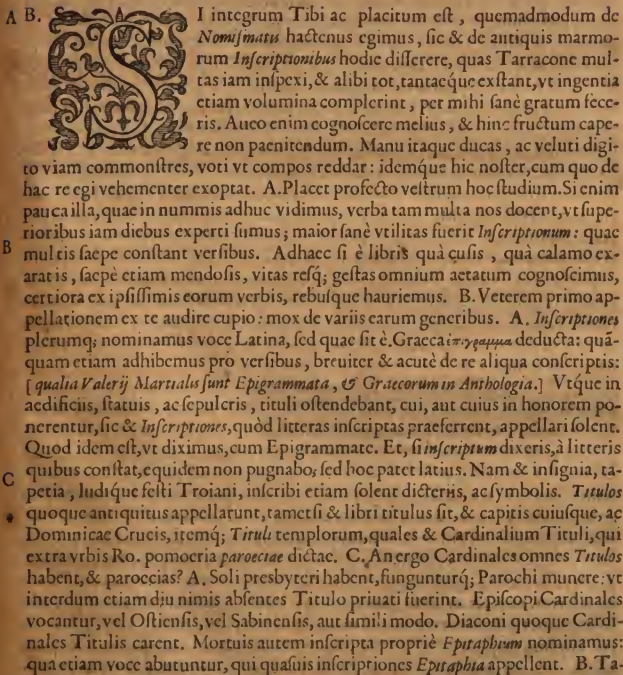 A B. SI integrum Tibi ac placitum eſt, quemadmodum de
Nomiſmatis hactenus egimus, ſic & de antiquis marmo-
rum Inſcriptionibus hodie diſſerere, quas Tarracone mul-
tas iam inſpexi, & alibi tot, tantaeque exſtant, vt ingentia
etiam volumina complerint, per mihi ſanè gratum fece-
ris. Aueo enim cognoſcere melius, & hinc fructum cape-
re non paenitendum. Manu itaque ducas, ac veluti digi-
to viam commonſtres, voti vt compos reddar: idemq́ue hic noſter, cum quo de
hac re egi vehementer exoptat. A. Placet profecto veſtrum hoc ſtudium. Si enim
pauca illa, quae in nummis adhuc vidimus, verba tam multa nos docent, vt ſupe-
rioribus iam diebus experti ſumus; maior ſanè vtilitas fuerit Inſcriptionum: quae
B multis ſaepe conſtant verſibus. Adhaec ſi è libris quà cuſis, quà calamo ex-
aratis, ſaepè etiam mendoſis, vitas reſq; geſtas omnium aetatum cognoſcimus,
certiora ex ipſiſſimis eorum verbis, rebuſque hauriemus. B. Veterem primo ap-
pellationem ex te audire cupio: mox de variis earum generibus. A. Inſcriptiones
plerumq; nominamus voce Latina, ſed quae ſit è Graeca ἐπίγραμμα deducta: quā-
quam etiam adhibemus pro verſibus, breuiter & acutè de re aliqua conſcriptis:
[qualia Valerij Martialis ſunt Epigrammata, & Graecorum in Anthologia.] Vtque in
aedificiis, ſtatuis, ac ſepulcris, tituli oſtendebant, cui, aut cuius in honorem po-
nerentur, ſic & Inſcriptiones, quòd litteras inſcriptas praeferrent, appellari ſolent.
Quod idem eſt, vt diximus, cum Epigrammate. Et, ſi inſcriptum dixeris, à litteris
C quibus conſtat, equidem non pugnabo; ſed hoc patet latius. Nam & inſignia, ta-
petia, ludiq́ue feſti Troiani, inſcribi etiam ſolent dicteriis, ac ſymbolis. Titulos
quoque antiquitus appellarunt, tametſi & libri titulus ſit, & capitis cuiuſque, ac
Dominicae Crucis, itemq; Tituli templorum, quales & Cardinalium Tituli, qui
extra vrbis Ro. pomoeria paroeciae dictae. C. An ergo Cardinales omnes Titulos
habent, & paroecias? A. Soli presbyteri habent, fungunturq; Parochi munere: vt
interdum etiam diu nimis abſentes Titulo priuati fuerint. Epiſcopi Cardinales
vocantur, vel Oſtienſis, vel Sabinenſis, aut ſimili modo. Diaconi quoque Cardi-
nales Titulis carent. Mortuis autem inſcripta propriè Epitaphium nominamus:
qua etiam voce abutuntur, qui quaſuis inſcriptiones Epitaphia appellent. B. Ta-